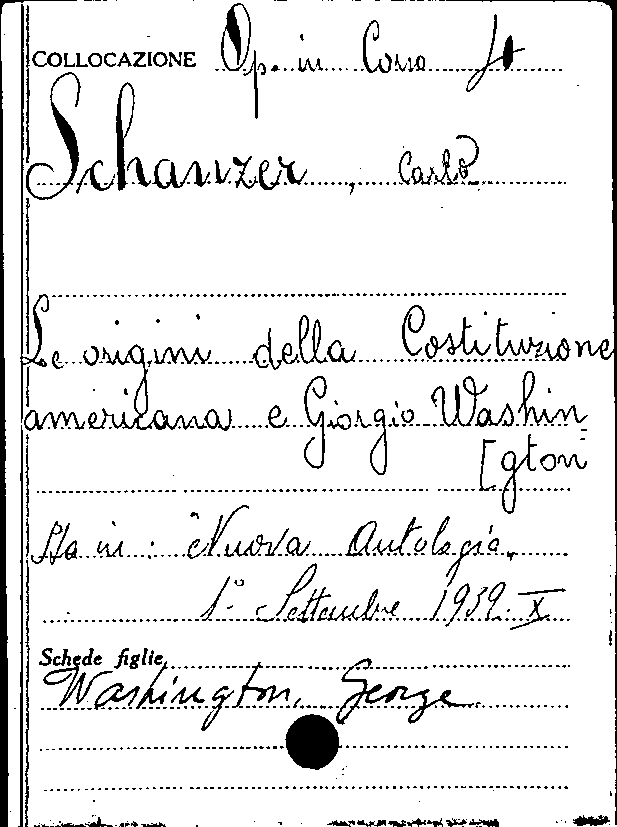 COLLOCAZIONE Op. in Corso
Schanzer, Carlo
Le origini della Costituzione
americana e Giorgio Washin=
[gton
Sta in: "Nuova Antologia"
1° Settembre 1932. X
Schede figlie
Washington, George